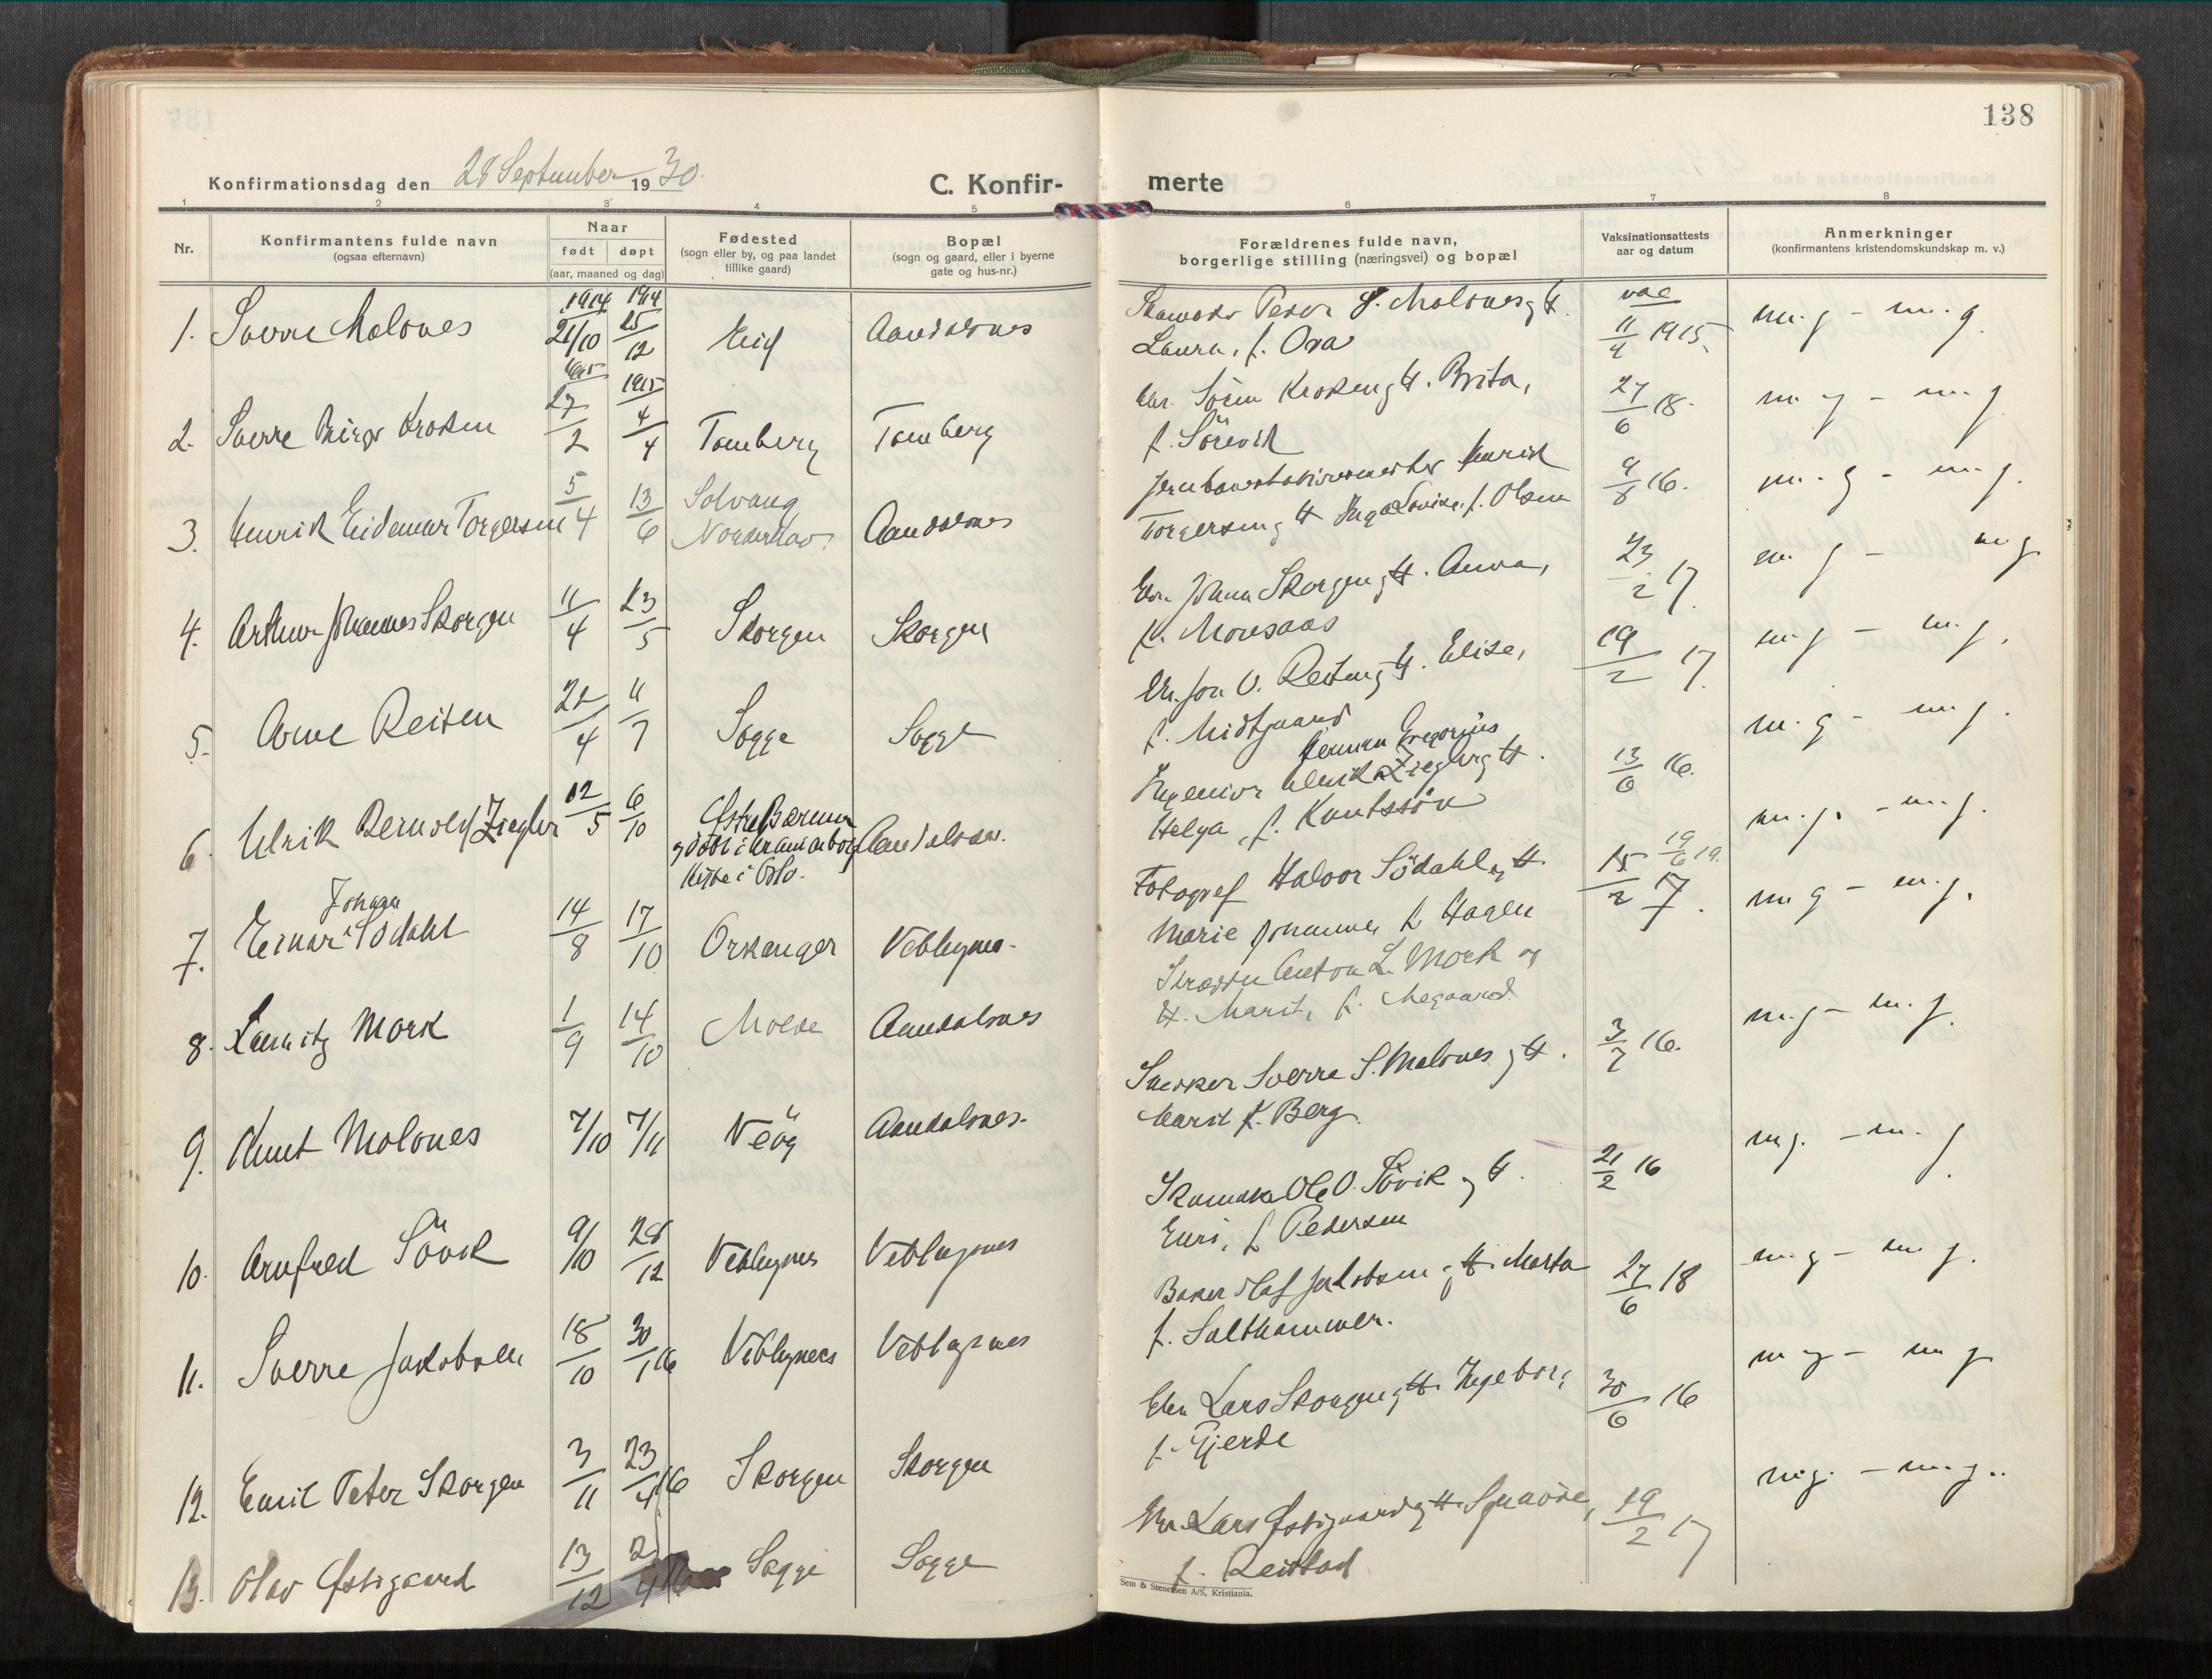 138
Konfirmationsdag den 28 September 1930.
C. Konfir- merte
1 2 3 4 5 6 7 8
Nr.
Konfirmantens fulde navn
(ogsaa efternavn)
Naar
født døpt
(aar, maaned og dag)
Fødested
(sogn eller by, og paa landet
tillike gaard)
Bopæl
(sogn og gaard, eller i byerne
gate og hus-nr.)
Forældrenes fulde navn,
borgerlige stilling (næringsvei) og bopæl
Vaksinationsattests
aar og datum
Anmerkninger
(konfirmantens kristendomskundskap m. v.)
1. Sverre Molvnes 1914 21/10 1914 25/12 Eid Aandalsnes
Peder S. Molvnes og H.
Laura, f. Ora
vac 11/4 1915. m.g - m.g
2. Sverre Birger Kroken 1915 27/2 1915 4/4 Tomberg Tomberg
Sören Kroken og H. Brita,
f. Sörevik
27/6 18. m g - m. g
3. Henrik Eidemar Torgersen 5/4 13/6 Solvang Aandalsnes
Henrik
Torgersen og H Inga Lovise, f. Olsen
9/8 16. m. g - m. g.
4. Arthur Johannes Skorgen 11/4 23/5 Skorgen Skorgen
Johan Skorgen og H. Anna,
f. Monsaas
23/2 17. m. g - m g.
5. Arne Reiten 22/4 11/7 Sogge Sogge
Jon O. Reiten og H. Elise,
f. Midtgaard
19/2 17. m. g - m. g.
6. Ulrik Bernolf Ziegler 12/5 6/10 Østre Bærum Aandalsnes.
og döbt i
Kirke i Oslo.
Herman Gregorius
Ingeniör Ulrik Ziegler og H.
Helga, f. Knutssön
13/6 16. m. g - m. g.
7. Einar Johan Södahl 14/8 17/10 Orkanger Veblugnes.
Fotograf Halvor Södahl og H.
Marie Johanne, f. Hagen
15/2 17. 19/6 19. m. g. - m. g.
8. Lauritz Mork 1/9 14/10 Molde Aandalsnes
Anton L. Mork og
H. Marit, f. Megaard.
m. g - m. g.
9. Knut Molvnes 7/10 7/11 Veöy Aandalsnes.
Snekker Sverre S. Molvnes og H.
Marit f. Berg.
3/7 16. m. g - m. g.
10. Arnfred Sövik 9/10 28/12 Veblugnes Veblugnes
Ole O. Sövik og H.
f. Pedersen
21/2 16 m g. - m. g.
11. Sverre Jakobsen 18/10 30/1 16 Veblugnes Veblugnes
Baker Olaf Jakobsen og H. Marta
f. Salthammer.
27/6 18 m. g - m g.
12. Emil Peter Skorgen 3/11 23/4 16 Skorgen Skorgen
Lars Skorgen og H. Ingeborg
f. Gjerde
30/6 16 m g - m g
13. Olav Østigaard 13/12 2/4 16 Sogge Sogge
Lars Østigaard og H.
f. Reistad
19/2 17 m g. - m. g.
Sem & Stenersen A/S, Kristiania.